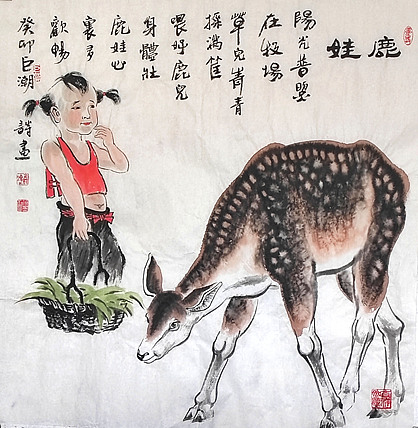 鹿娃
陽光普照
在牧場
草兒青青
採滿筐
喂好鹿兒
身體壯
鹿娃心
裏多
歡暢
癸卯巨潮
詩畫